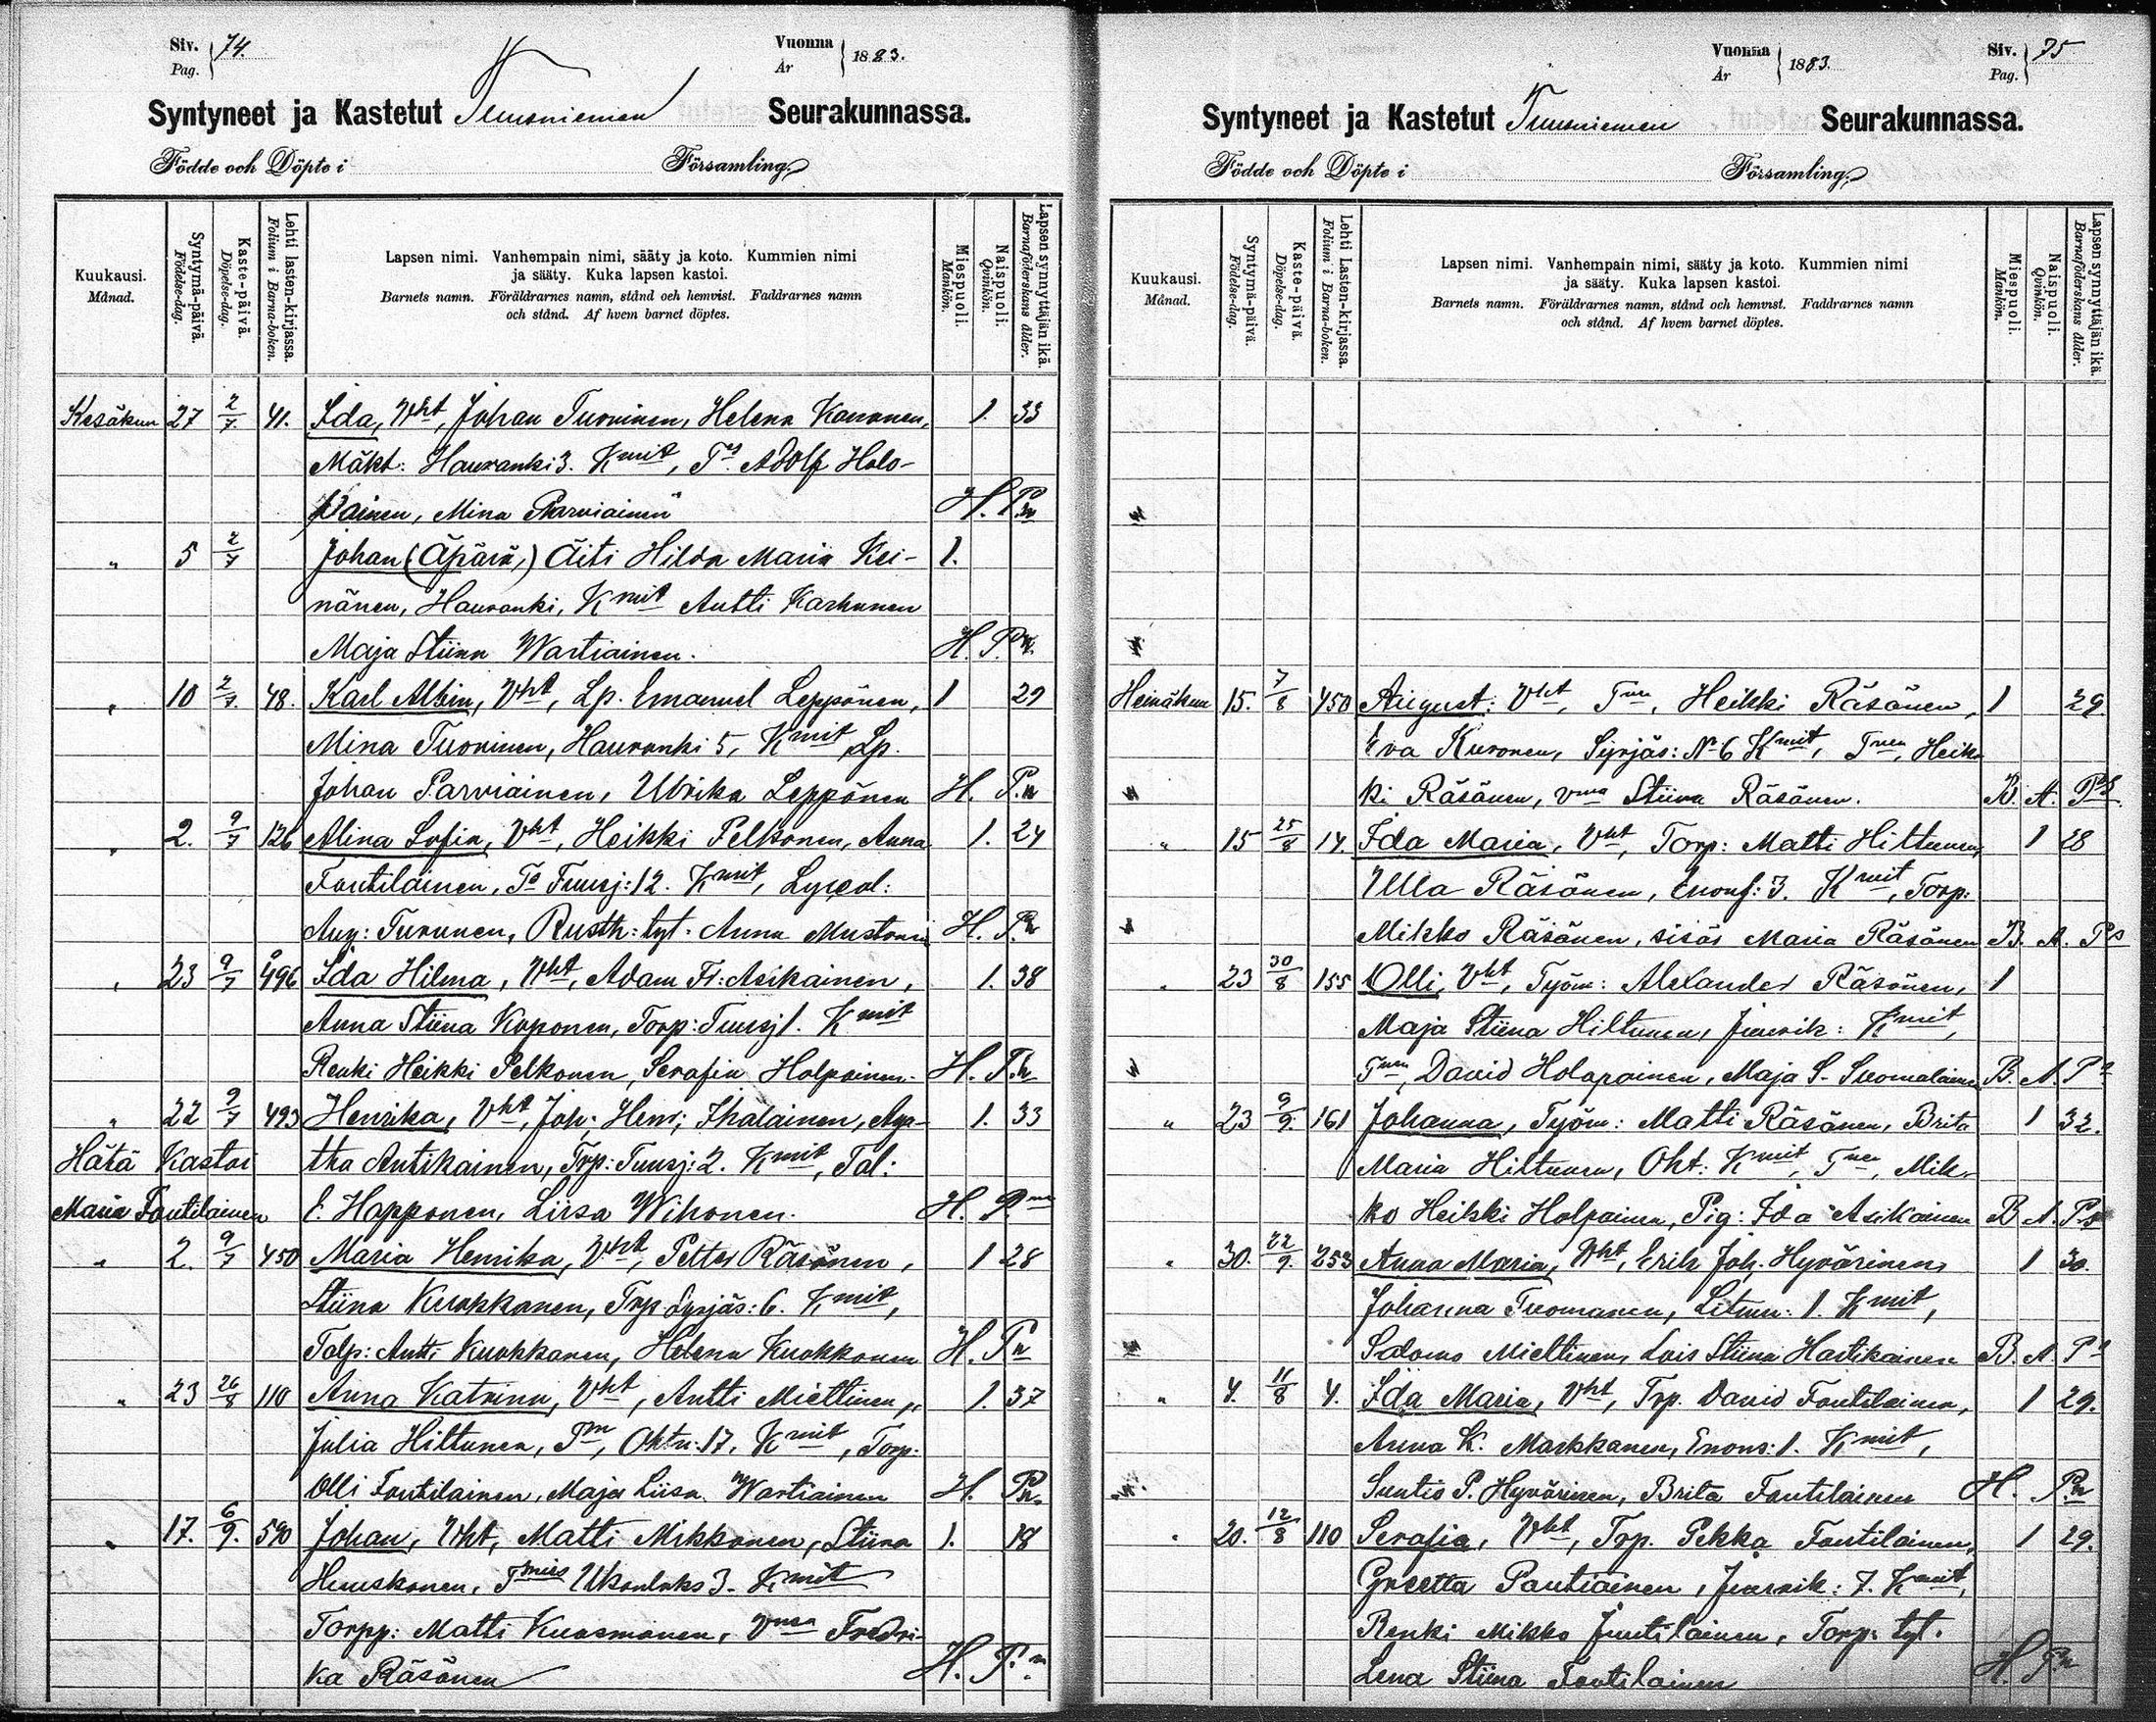 Siv. 74.
Pag.
Vuonna 1883.
År
Syntyneet ja Kastetut Tuusniemen Seurakunnassa.
Födde och Döpte i Församling.
Kuukausi.
Månad.
Syntymä-päivä.
Födelse-dag.
Kaste-päivä.
Döpelse-dag.
Lehti lasten-kirjassa.
Folium i Barna-boken.
Lapsen nimi. Vanhempain nimi, sääty ja koto. Kummien nimi
ja sääty. Kuka lapsen kastoi.
Barnets namn. Föräldrarnes namn, stånd och hemvist. Faddrarnes namn
och stånd. Af hvem barnet döptes.
Miespuoli.
Mankön.
Naispuoli.
Qvinkön.
Lapsen synnyttäjän ikä.
Barnaföderskans ålder.
Kesäkun 27 2/7. 41. Ida, Vht, Johan Tuovinen, Helena Karonen, 1. 33
Mäkt: Hauranki 3. Kmit, Adolf Holo-
painen, Mina Parviainen H. Pn
" 5 2/7 Johan (Äpärä,) Äiti Hilda Maria Kei- 1.
nänen, Hauranki, Kmit Antti Karhunen
Maja Stiina Wartiainen. H. Pn.
" 10 2/7. 48. Karl Albin, Vht, Lp. Emanuel Leppönen, 1 29
Mina Tuovinen, Hauranki 5, Kmit Lp.
Johan Parviainen, Ulrika Leppönen H. P.n
" 2. 9/7 126 Alina Sofia, Vht, Heikki Pelkonen, Anna 1. 24
Fontilainen, Tuusj: 12. Kmit,
Aug: Turunen, Rusth: tyt. Anna Mustonen H. Pn
" 23 9/7 496 Ida Hilma, Vht, Adam Fr: Asikainen, 1. 38
Anna Stiina Kuponen, Torp: Tuusj 1. Kmit
Renki Heikki Pelkonen, Serafia Holpainen. H. P.n
" 22 9/7 493 Henrika, Vht, Joh: Henr; Ihalainen, Aga- 1. 33
Hätä Kastoi ttha Antikainen, Trp: Tuusj: 2. Kmit, Tal:
Maria Fontilainen E. Happonen, Liisa Wihonen. H. P.n
" 2. 9/7 450 Maria Henrika, Vht, Petter Räsänen, 1 28
Stiina Kuokkanen, Trp Syrjäs: 6. Kmit,
Talp: Antti Kuokkanen, Helena Kuokkonen H. Pn
" 23 26/8 110 Anna Katrina, Vht, Antti Miettinen, 1. 37
Julia Hiltunen, Tm, Oktu: 17. Kmit, Torp:
Olli Fontilainen, Maja Liisa Wartiainen H. Pn.
" 17. 6/9. 590 Johan, Vht, Matti Mikkonen, Stiina 1. 18
Huuskonen, Tmies 3. Kmit
Torpp: Matti Kuosmanen, Vmea Fredri-
ka Räsänen H. P.n
Vuonna 1883.
År
Siv. 75
Pag.
Syntyneet ja Kastetut Tuusniemen Seurakunnassa.
Födde och Döpte i Församling.
Kuukausi.
Månad.
Syntymä-päivä.
Födelse-dag.
Kaste-päivä.
Döpelse-dag.
Lehti Lasten-kirjassa.
Folium i Barna-boken.
Lapsen nimi. Vanhempain nimi, sääty ja koto. Kummien nimi
ja sääty. Kuka lapsen kastoi.
Barnets namn. Föräldrarnes namn, stånd och hemvist. Faddrarnes namn
och stånd. Af hvem barnet döptes.
Miespuoli.
Mankön.
Naispuoli.
Qvinkön.
Lapsen synnyttäjän ikä.
Barnaföderskans ålder.
Heinäkun 15. 7/8 450 August: Vht, Heikki Räsänen, 1 29.
Eva Kuronen, Syrjäs: No 6 Kmit, Heik-
ki Räsänen, Stiina Räsänen. B. A. Ps
" 15 25/8 14. Ida Maria, Vht, Torp: Matti Hiltunen, 1 28
Ulla Räsänen, Enonf: 3. Kmit, Torp:
Mikko Räsänen, sisär Maria Räsänen B. A. Ps
" 23 30/8 155 Olli, Vht, Työm: Alexander Räsänen, 1
Maja Stiina Hiltunen, Juurik: Kmit,
David Holopainen, Maja S. Suomalainen B. A. Ps
" 23 9/9. 161 Johanna, Työm: Matti Räsänen, Brita 1 32.
Maria Hiltunen, Okt: Kmit, Mik-
ko Heikki Holpainen, Pig: Ida Asikainen B A. Ps
" 30. 22/9. 253 Anna Maria, Vht, Erik Joh. Hyvärinen 1 30.
Johanna Tuomanen, Litmn: 1. Kmit,
Salomo Miettinen, Lois Stiina Hartikainen B. A Ps
" 4. 11/8 4. Ida Maria, Vht, Trp. David Fontilainen, 1 29.
Anna K. Markkanen, Enons: 1. Kmit,
Suntio P. Hyvärinen, Brita Fontilainen H. P.n
" 20. 12/8 110 Serafia, Vht, Trp. Pekka Fontilainen, 1 29.
Greetta Pantiainen, Juurik: 7. Kmit,
Renki Mikko Juutilainen, Torp: tyt.
Lena Stiina Fontilainen H. P.n